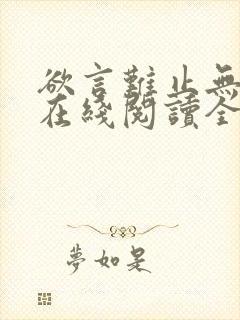 欲言難止無
在綫閱讀全
夢如是